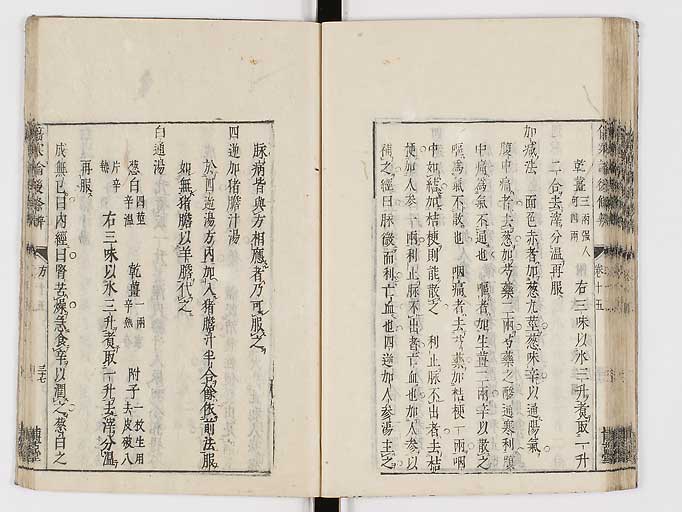 乾薑 三兩強人可四兩 右三味以水三升煮取一升
二合去滓分温再服
加減法 面色赤者加葱九莖葱味辛以通陽氣
腹中痛者去葱加芍藥二兩芍藥之酸通寒利腹
中痛爲氣不通也 嘔者加生薑二兩辛以散之
嘔爲氣不散也 咽痛者去芍藥加桔梗一兩咽
中如結加桔梗則能散之 利止脉不出者去桔
梗加人參二兩利止脉不出者亡血也加人參以
補之經曰脉微而利亡血也四逆加人參湯主之
卷十五
脉病皆與方相應者乃可服之
四逆加猪膽汁湯
於四逆湯方内加入猪膽汁半合餘依前法服
如無猪膽以羊膽代之
白通湯
葱白 四莖辛温 乾薑 一兩辛熱 附子 一枚生用去皮破八
片辛熱 右三味以水三升煮取一升去滓分温
再服
成無已曰内經曰腎苦燥急食辛以潤之葱白之
方 十五